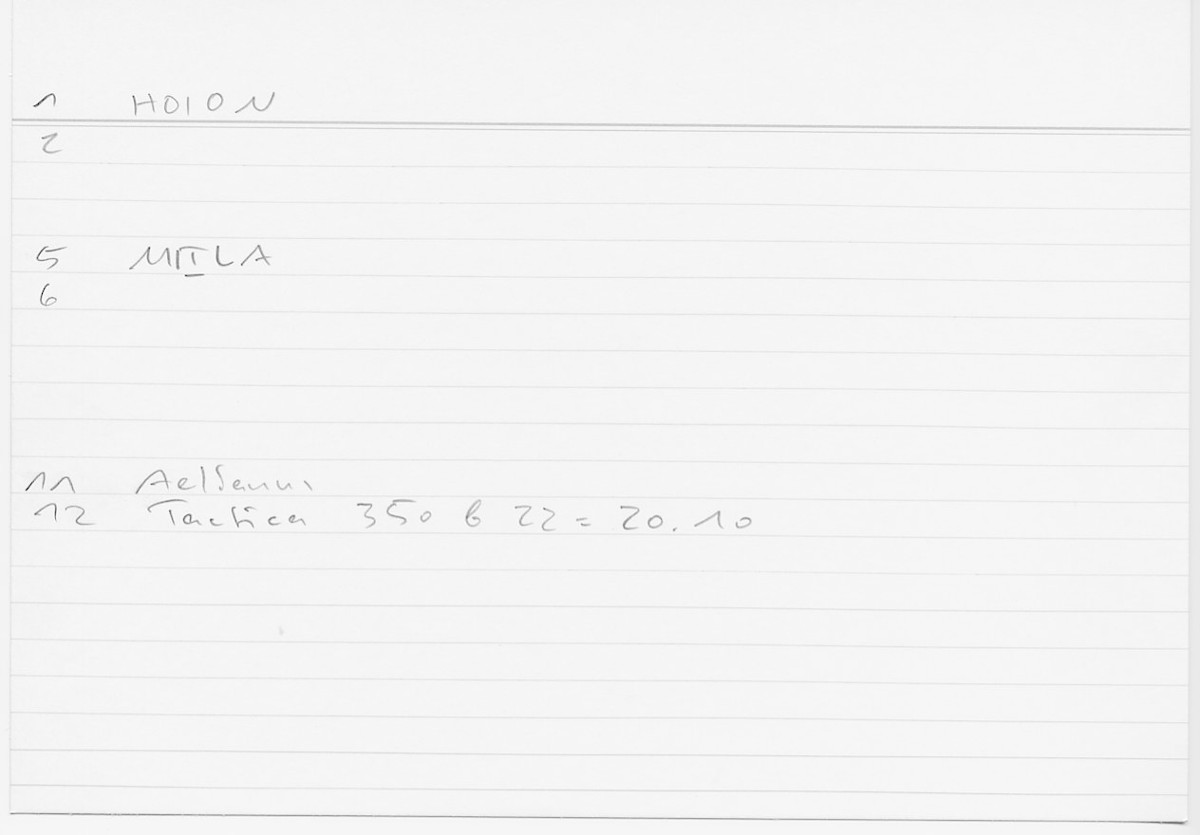 1 HOION
2
5 MITLA
6
11 Aelianus
12 Tactica 350 b 22 = 20.10